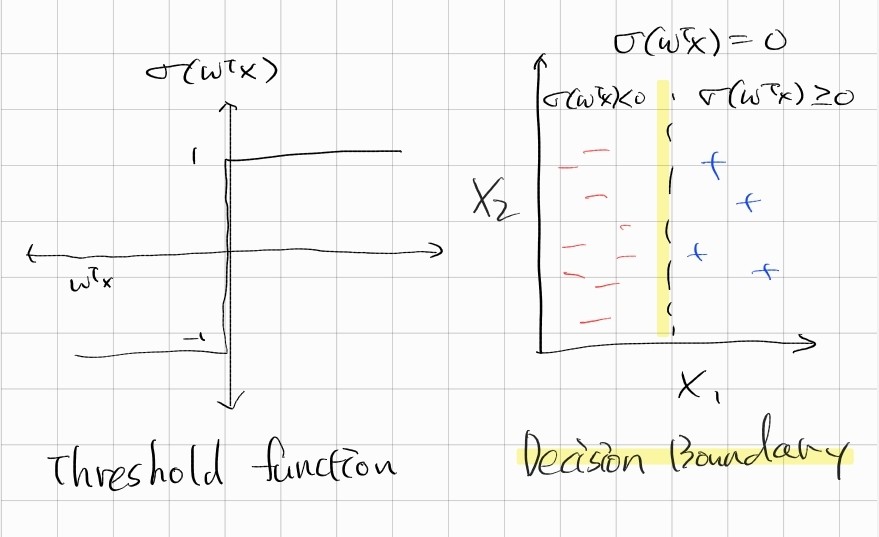 σ(wᵀx)
1
wᵀx
-1
Threshold function
σ(wᵀx) = 0
σ(wᵀx)<0
σ(wᵀx) ≥0
X₂
X₁
Decision Boundary